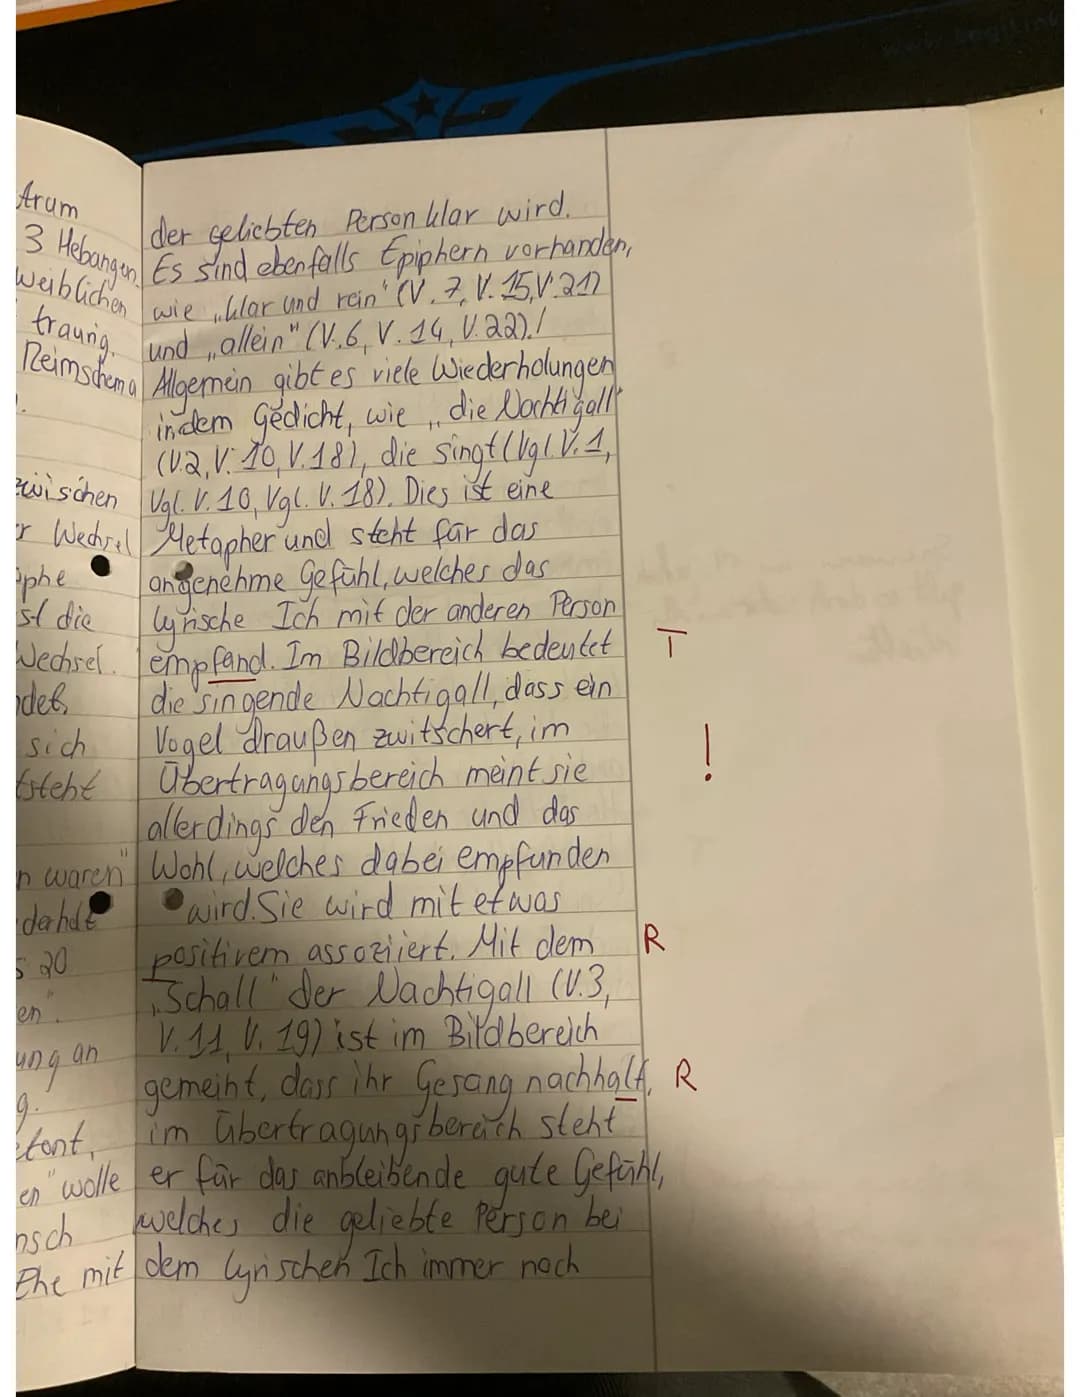 Arum
3 Hebungen.
weiblichen
traurig.
Reimschema
zwischen
er Wechsel
ophe
ist die
Wechsel.
ndet,
sich
tsteht
n waren"
derholt
s 20
en".
ung an
g.
etont,
en" wolle
nsch
Ehe mit
der geliebten Person klar wird.
Es sind ebenfalls Epiphern vorhanden,
wie „klar und rein" (V. 7, V. 15, V. 21)
und „allein" (V. 6, V. 14, V. 22)./
Allgemein gibt es viele Wiederholungen
in dem Gedicht, wie „die Nachtigall"
(V. 2, V. 10, V. 18), die singt (Vgl. V. 1,
Vgl. V. 10, Vgl. V. 18). Dies ist eine
Metapher und steht für das
angenehme Gefühl, welches das
lyrische Ich mit der anderen Person
empfand. Im Bildbereich bedeutet T
die singende Nachtigall, dass ein
Vogel draußen zwitschert, im !
Übertragungsbereich meint sie
allerdings den Frieden und das
Wohl, welches dabei empfunden
wird. Sie wird mit etwas
positivem assoziiert. Mit dem R
„Schall" der Nachtigall (V. 3,
V. 11, V. 19) ist im Bildbereich
gemeint, dass ihr Gesang nachhalt, R
im Übertragungsbereich steht
er für das anbleibende gute Gefühl,
welches die geliebte Person bei
dem lyrischen Ich immer noch